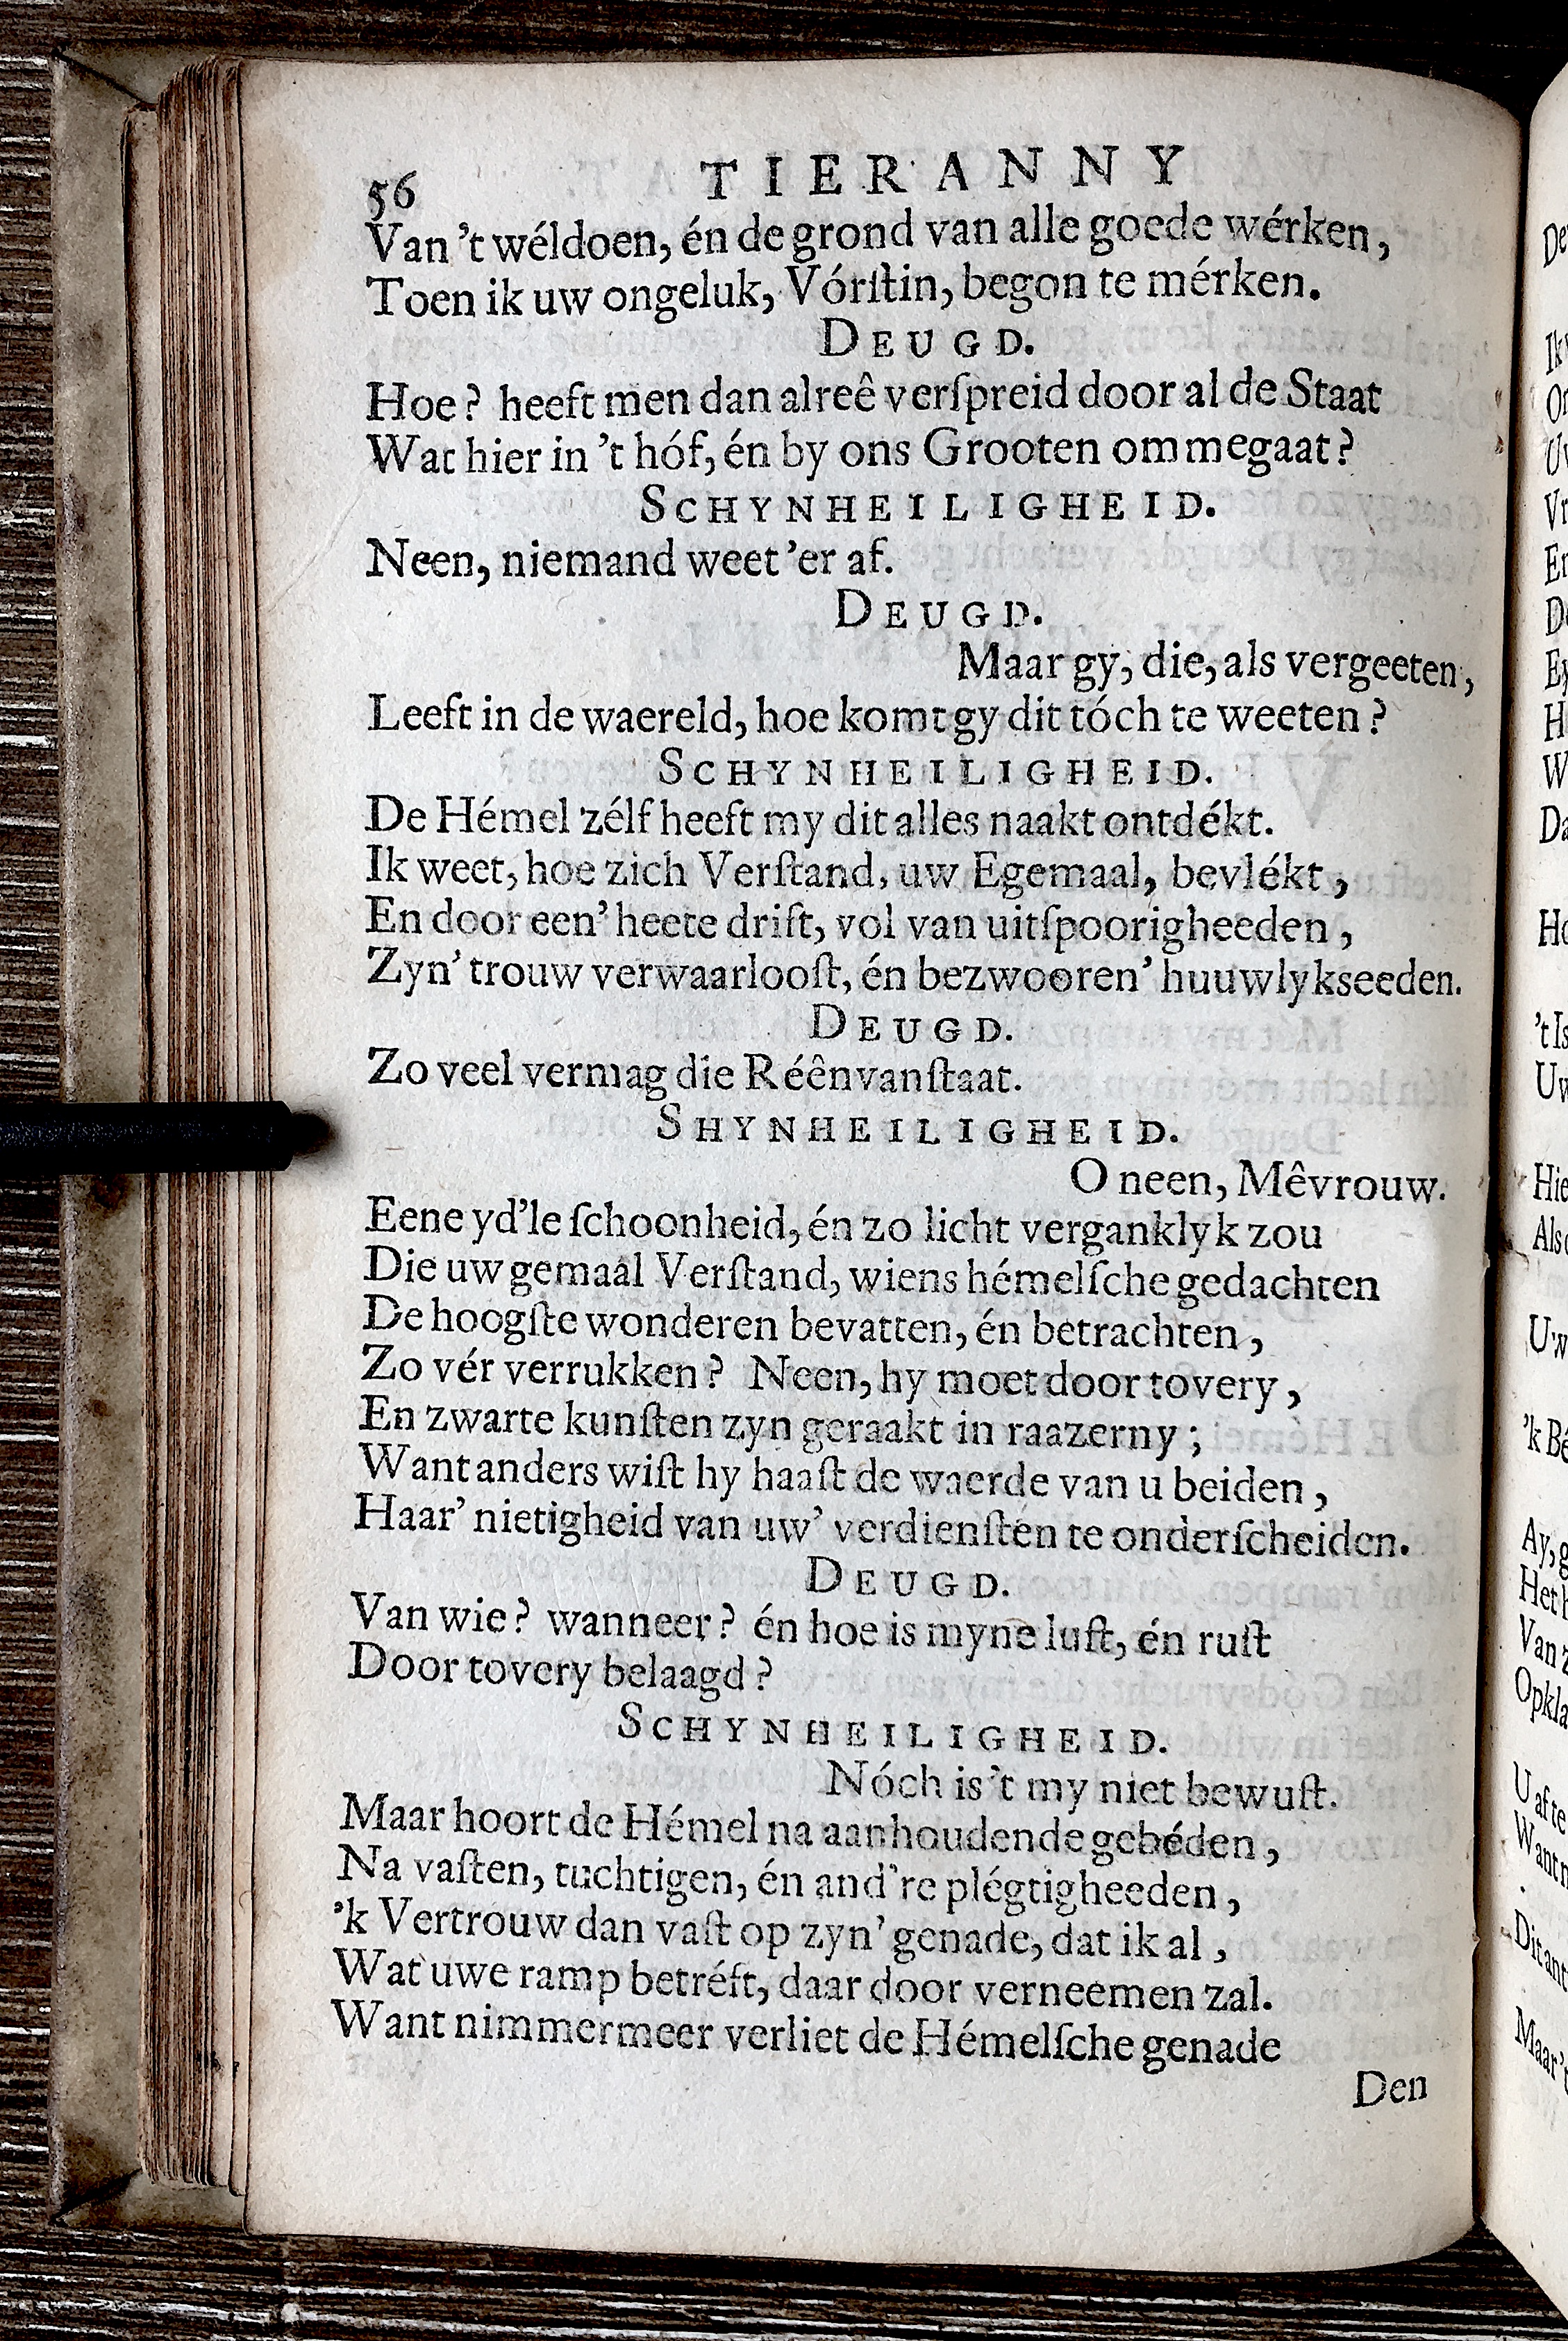 56 TIERANNY
Van 't wéldoen, én de grond van alle goede wérken,
Toen ik uw ongeluk, Vórſtin, begon te mérken.
DEUGD.
Hoe? heeft men dan alreê verſpreid door al de Staat
Wat hier in 't hóf, én by ons Grooten ommegaat?
SCHYNHEILIGHEID.
Neen, niemand weet 'er af.
DEUGD.
Maar gy, die, als vergeeten,
Leeft in de waereld, hoe komt gy dit tóch te weeten?
SCHYNHEILIGHEID.
De Hémel zélf heeft my dit alles naakt ontdékt.
Ik weet, hoe zich Verſtand, uw Egemaal, bevlékt,
En door een' heete drift, vol van uitſpoorigheeden,
Zyn' trouw verwaarlooſt, én bezwooren' huuwlykseeden.
DEUGD.
Zo veel vermag die Réênvanſtaat.
SHYNHEILIGHEID.
O neen, Mêvrouw.
Eene yd'le ſchoonheid, én zo licht verganklyk zou
Die uw gemaal Verſtand, wiens hémelſche gedachten
De hoogſte wonderen bevatten, én betrachten,
Zo vér verrukken? Neen, hy moet door tovery,
En zwarte kunſten zyn geraakt in raazerny;
Want anders wiſt hy haaſt de waerde van u beiden,
Haar' nietigheid van uw' verdienſten te onderſcheiden.
DEUGD.
Van wie? wanneer? én hoe is myne luſt, én ruſt
Door tovery belaagd?
SCHYNHEILIGHEID.
Nóch is 't my niet bewuſt.
Maar hoort de Hémel na aanhoudende gebéden,
Na vaſten, tuchtigen, én and're plégtigheeden,
'k Vertrouw dan vaſt op zyn' genade, dat ik al,
Wat uwe ramp betréft, daar door verneemen zal.
Want nimmermeer verliet de Hémelſche genade
Den